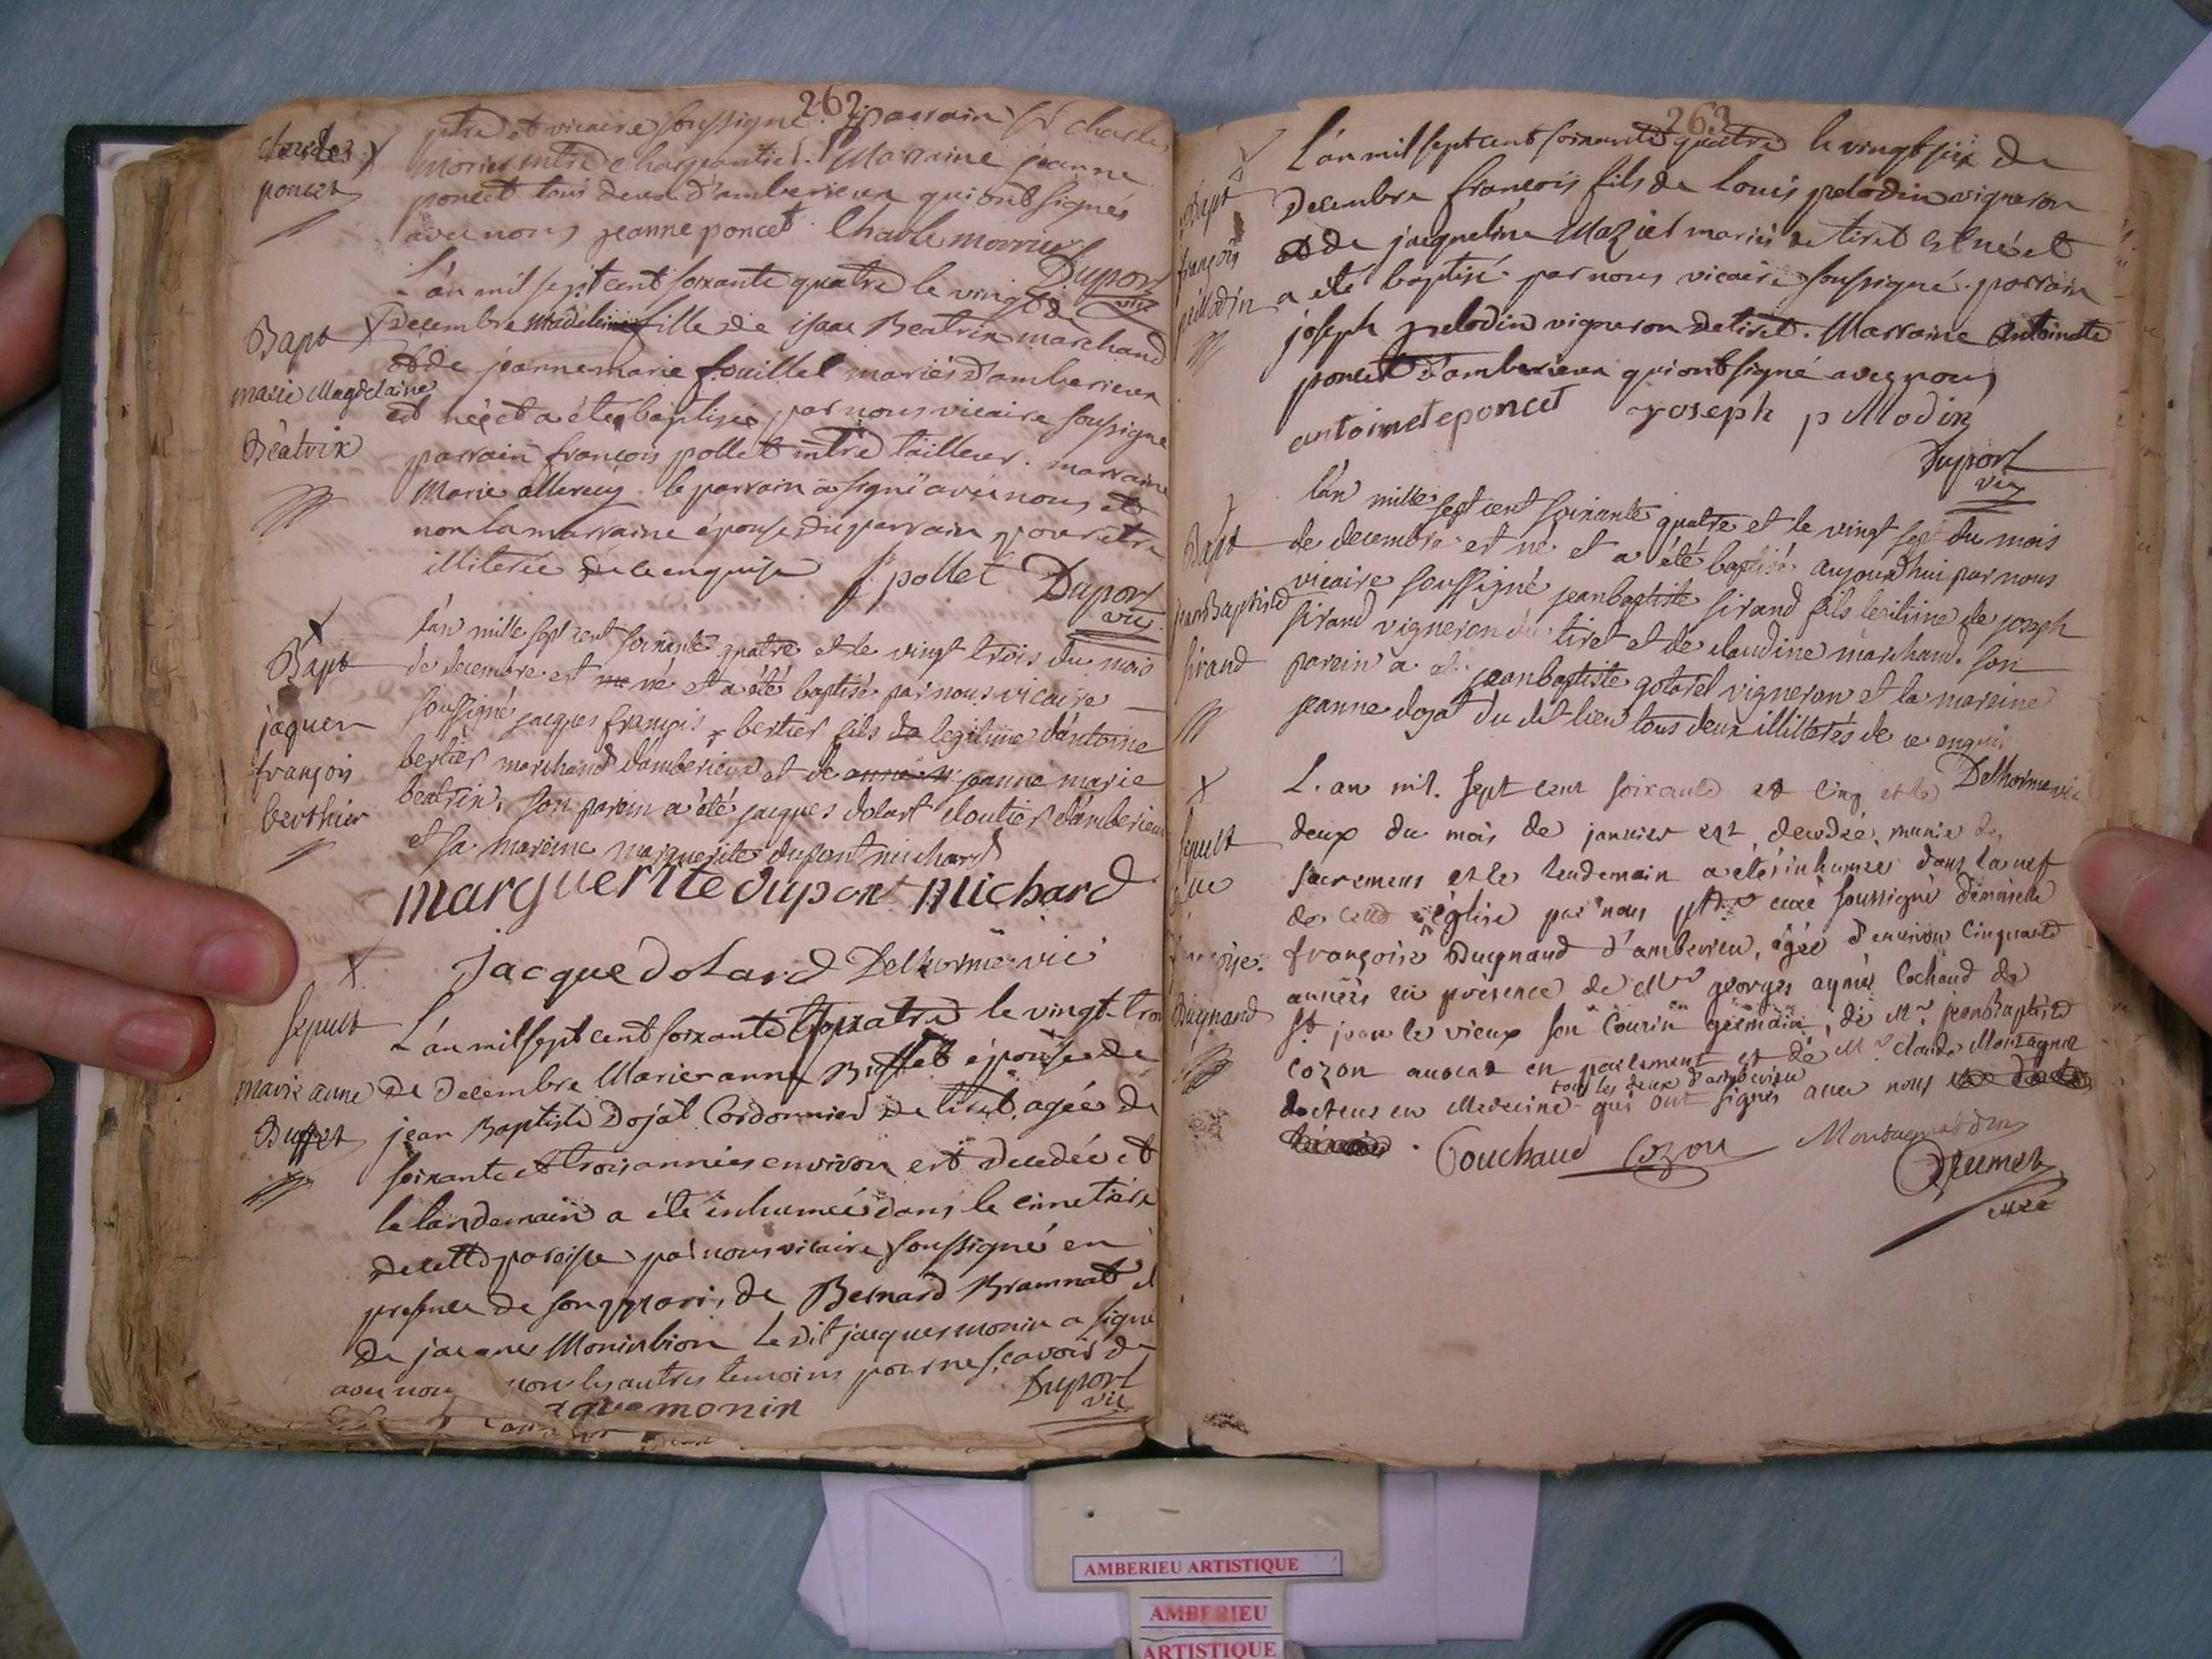 262
ptre et vicaire soussigné. parrain Sr charle
morier mtre charpantier. Marraine jeanne
poncet tous deux d'amberieux qui ont signés
avec nous jeanne poncet Charle morier
Duport
vic
claudes
poncet
L'án mil sept cent soixante quatre le vingt de
Decembre Madeleine fille de isaac Beatrix marchand
et de jeanne marie fouillet mariés d'amberieux
est née et a été baptisée par nous vicaire soussigné
parrain françois pollet mtre tailleur. marraine
Marie le parrain a signé avec nous et
non la marraine épouse du parrain pour être
illiterée de ce enquise f pollet Duport
vic
Bapt
marie Magdelaine
Béatrix
l'án mille sept cent soixante quatre et le vingt trois du mois
de decembre est né et a été baptisé par nous vicaire
soussigné jacques françois bertier fils legitime d'antoine
bertier marchand d'amberieux et de jeanne marie
beatrix, son parein a été jacques dolart cloutier d'amberieux
et sa mareine marguerite dupont michard
marguerite dupont michard
jacque dolard Delhorme vic
Bapt
jaques
françois
berthier
L'án mil sept cent soixante quatre le vingt-trois
de decembre Marie anne Buffet épouse de
jean Baptiste Dojat Cordonnier de tiret, agée de
soixante et trois années environ est decedée et
le landemain a été inhumée dans le cimetière
de cette paroisse par nous vicaire soussigné en
presence de son mari, de Bernard Bramnat et
de jacques Monin bion le dit jacques monin a signé
avec nous non les autres temoins pour ne sçavoir de
Duport
vic
monin
sepult
marie anne
Buffet
263
L'án mil sept cent soixante quatre le vingt six de
Decembre françois fils de Louis pelodin vigneron
et de jacqueline Mazier mariés de tiret est né et
a été baptisé par nous vicaire soussigné. parrain
joseph pelodin vigneron de tiret. Marraine Antoinette
poncet d'amberieux qui ont signé avec nous
antoinete poncet joseph pillodin
Duport
vic
Bapt
françois
pillodin
l'án mille sept cent soixante quatre et le vingt sept du mois
de decembre est né et a été baptisé aujourd'hui par nous
vicaire soussigné jeanbaptiste sirand fils legitime de joseph
sirand vigneron du tiret et de claudine marchand. son
parein a été jeanbaptiste gotaret vigneron et la mareine
jeanne dojat du dit lieu tous deux illiterés de ce enquis
Delhorme vic
Bapt
jean Baptiste
sirand
L'an mil sept cent soixante et cinq et le
deux du mois de janvier est decedée, munie des
sacremens et le lendemain a été inhumée dans la nef
de cette église par nous ptre curé soussigné demoiselle
françoise Dugnand d'amberieu, âgée d'environ Cinquante
années en présence de Mr georges aymé Cochaud de
St jean le vieux son Cousin germain, de Mr jeanBaptiste
Cozon avocat en parlement et de Mr claude Montagnat
tous les deux d'amberieu
docteur en Medecine qui ont signés avec nous
Couchaud Cozon Montagnat dm
curé
sepult
Dugnand
AMBERIEU ARTISTIQUE
AMBERIEU
ARTISTIQUE